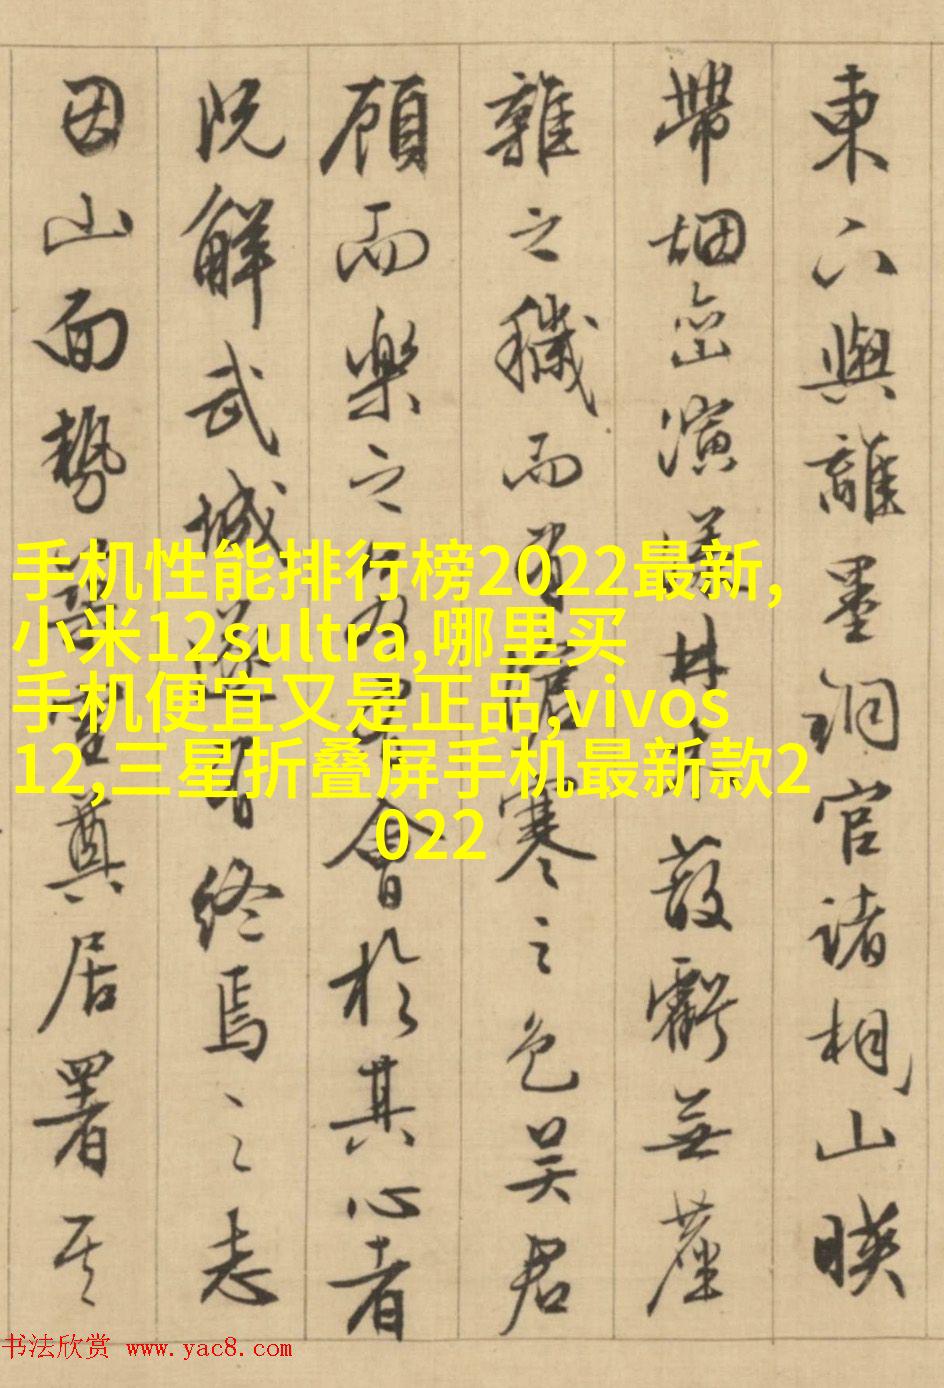 東六與離墨銅官諸相山暎
帶烟巒演漾林
葭靄無塵
雜之穢而
寒之色吴君
顧而樂之
會於其心者
既解武城
終焉之志
因山面勢
奠居署其
手机性能排行榜2022最新,
小米12sultra,哪里买
手机便宜又是正品,vivos
12,三星折叠屏手机最新款2
022
书法欣赏 www.yac8.com